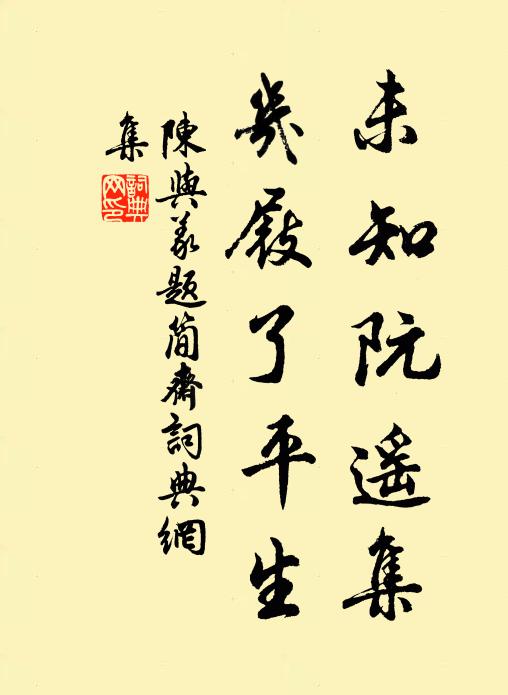 未知阮遥集
幾屐了平生
陳與義題簡齋詞典網
集
詞典網印